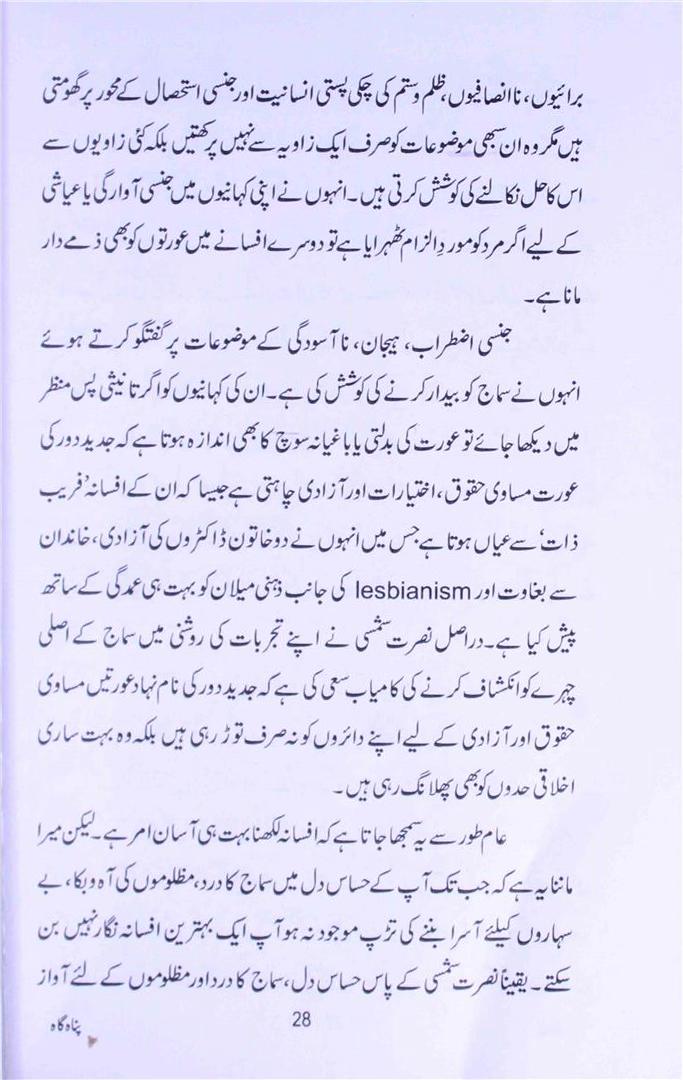 برائیوں، ناانصافیوں، ظلم وستم کی چکی پستی انسانیت اور جنسی استحصال کے محور پر گھومتی
ہیں مگر وہ ان سبھی موضوعات کو صرف ایک زاویہ سے نہیں پرکھتیں بلکہ کئی زاویوں سے
اس کا حل نکالنے کی کوشش کرتی ہیں۔ انہوں نے اپنی کہانیوں میں جنسی آوارگی یا عیاشی
کے لیے اگر مرد کو موردِ الزام ٹھہرایا ہے تو دوسرے افسانے میں عورتوں کو بھی ذمے دار
مانا ہے۔
جنسی اضطراب، ہیجان، ناآسودگی کے موضوعات پر گفتگو کرتے ہوئے
انہوں نے سماج کو بیدار کرنے کی کوشش کی ہے۔ ان کی کہانیوں کو اگر تانیثی پس منظر
میں دیکھا جائے تو عورت کی بدلتی یا باغیانہ سوچ کا بھی اندازہ ہوتا ہے کہ جدید دور کی
عورت مساوی حقوق، اختیارات اور آزادی چاہتی ہے جیسا کہ ان کے افسانہ ’فریب
ذات‘ سے عیاں ہوتا ہے جس میں انہوں نے دو خاتون ڈاکٹروں کی آزادی، خاندان
سے بغاوت اور lesbianism کی جانب ذہنی میلان کو بہت ہی عمدگی کے ساتھ
پیش کیا ہے۔ دراصل نصرت شمسی نے اپنے تجربات کی روشنی میں سماج کے اصلی
چہرے کو انکشاف کرنے کی کامیاب سعی کی ہے کہ جدید دور کی نام نہاد عورتیں مساوی
حقوق اور آزادی کے لیے اپنے دائروں کو نہ صرف توڑ رہی ہیں بلکہ وہ بہت ساری
اخلاقی حدوں کو بھی پھلانگ رہی ہیں۔
عام طور سے یہ سمجھا جاتا ہے کہ افسانہ لکھنا بہت ہی آسان امر ہے۔ لیکن میرا
ماننا یہ ہے کہ جب تک آپ کے حساس دل میں سماج کا درد، مظلوموں کی آہ و بکا، بے
سہاروں کیلئے آسرا بننے کی تڑپ موجود نہ ہو آپ ایک بہترین افسانہ نگار نہیں بن
سکتے۔ یقیناً نصرت شمسی کے پاس حساس دل، سماج کا درد اور مظلوموں کے لئے آواز
28
پناہ گاہ